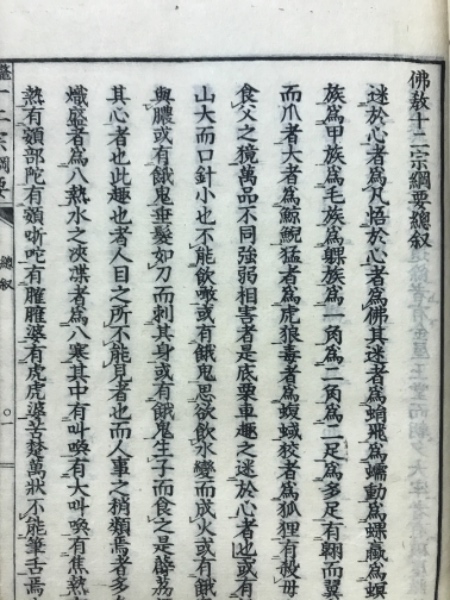 佛敎十二宗綱要總叙
迷於心者爲凡悟於心者爲佛其迷者爲蜎飛爲蠕動爲螺蠃爲螟
族爲甲族爲毛族爲躶族爲一角爲二角爲二足爲多足有翺而翼
而爪者大者爲鯨鯢猛者爲虎狼毒者爲蝮蜮狡者爲狐狸有
食父之獍萬品不同強弱相害者是底栗車趣之迷於心者也或有
山大而口針小也不能飮噉或有餓鬼思欲飮水變而成火或有餓
與膿或有餓鬼垂髮如刀而刺其身或有餓鬼生子而食之是薜荔
其心者也此趣也者人目之所不能見者也而人事之稍類焉者多
熾盛者爲八熱水之浹渫者爲八寒其中有叫喚有大叫喚有焦熱
熱有頞部陀有頞哳吒有臛臛婆有虎虎婆苦楚萬狀不能筆舌焉
十二宗綱要 總叙 〇一